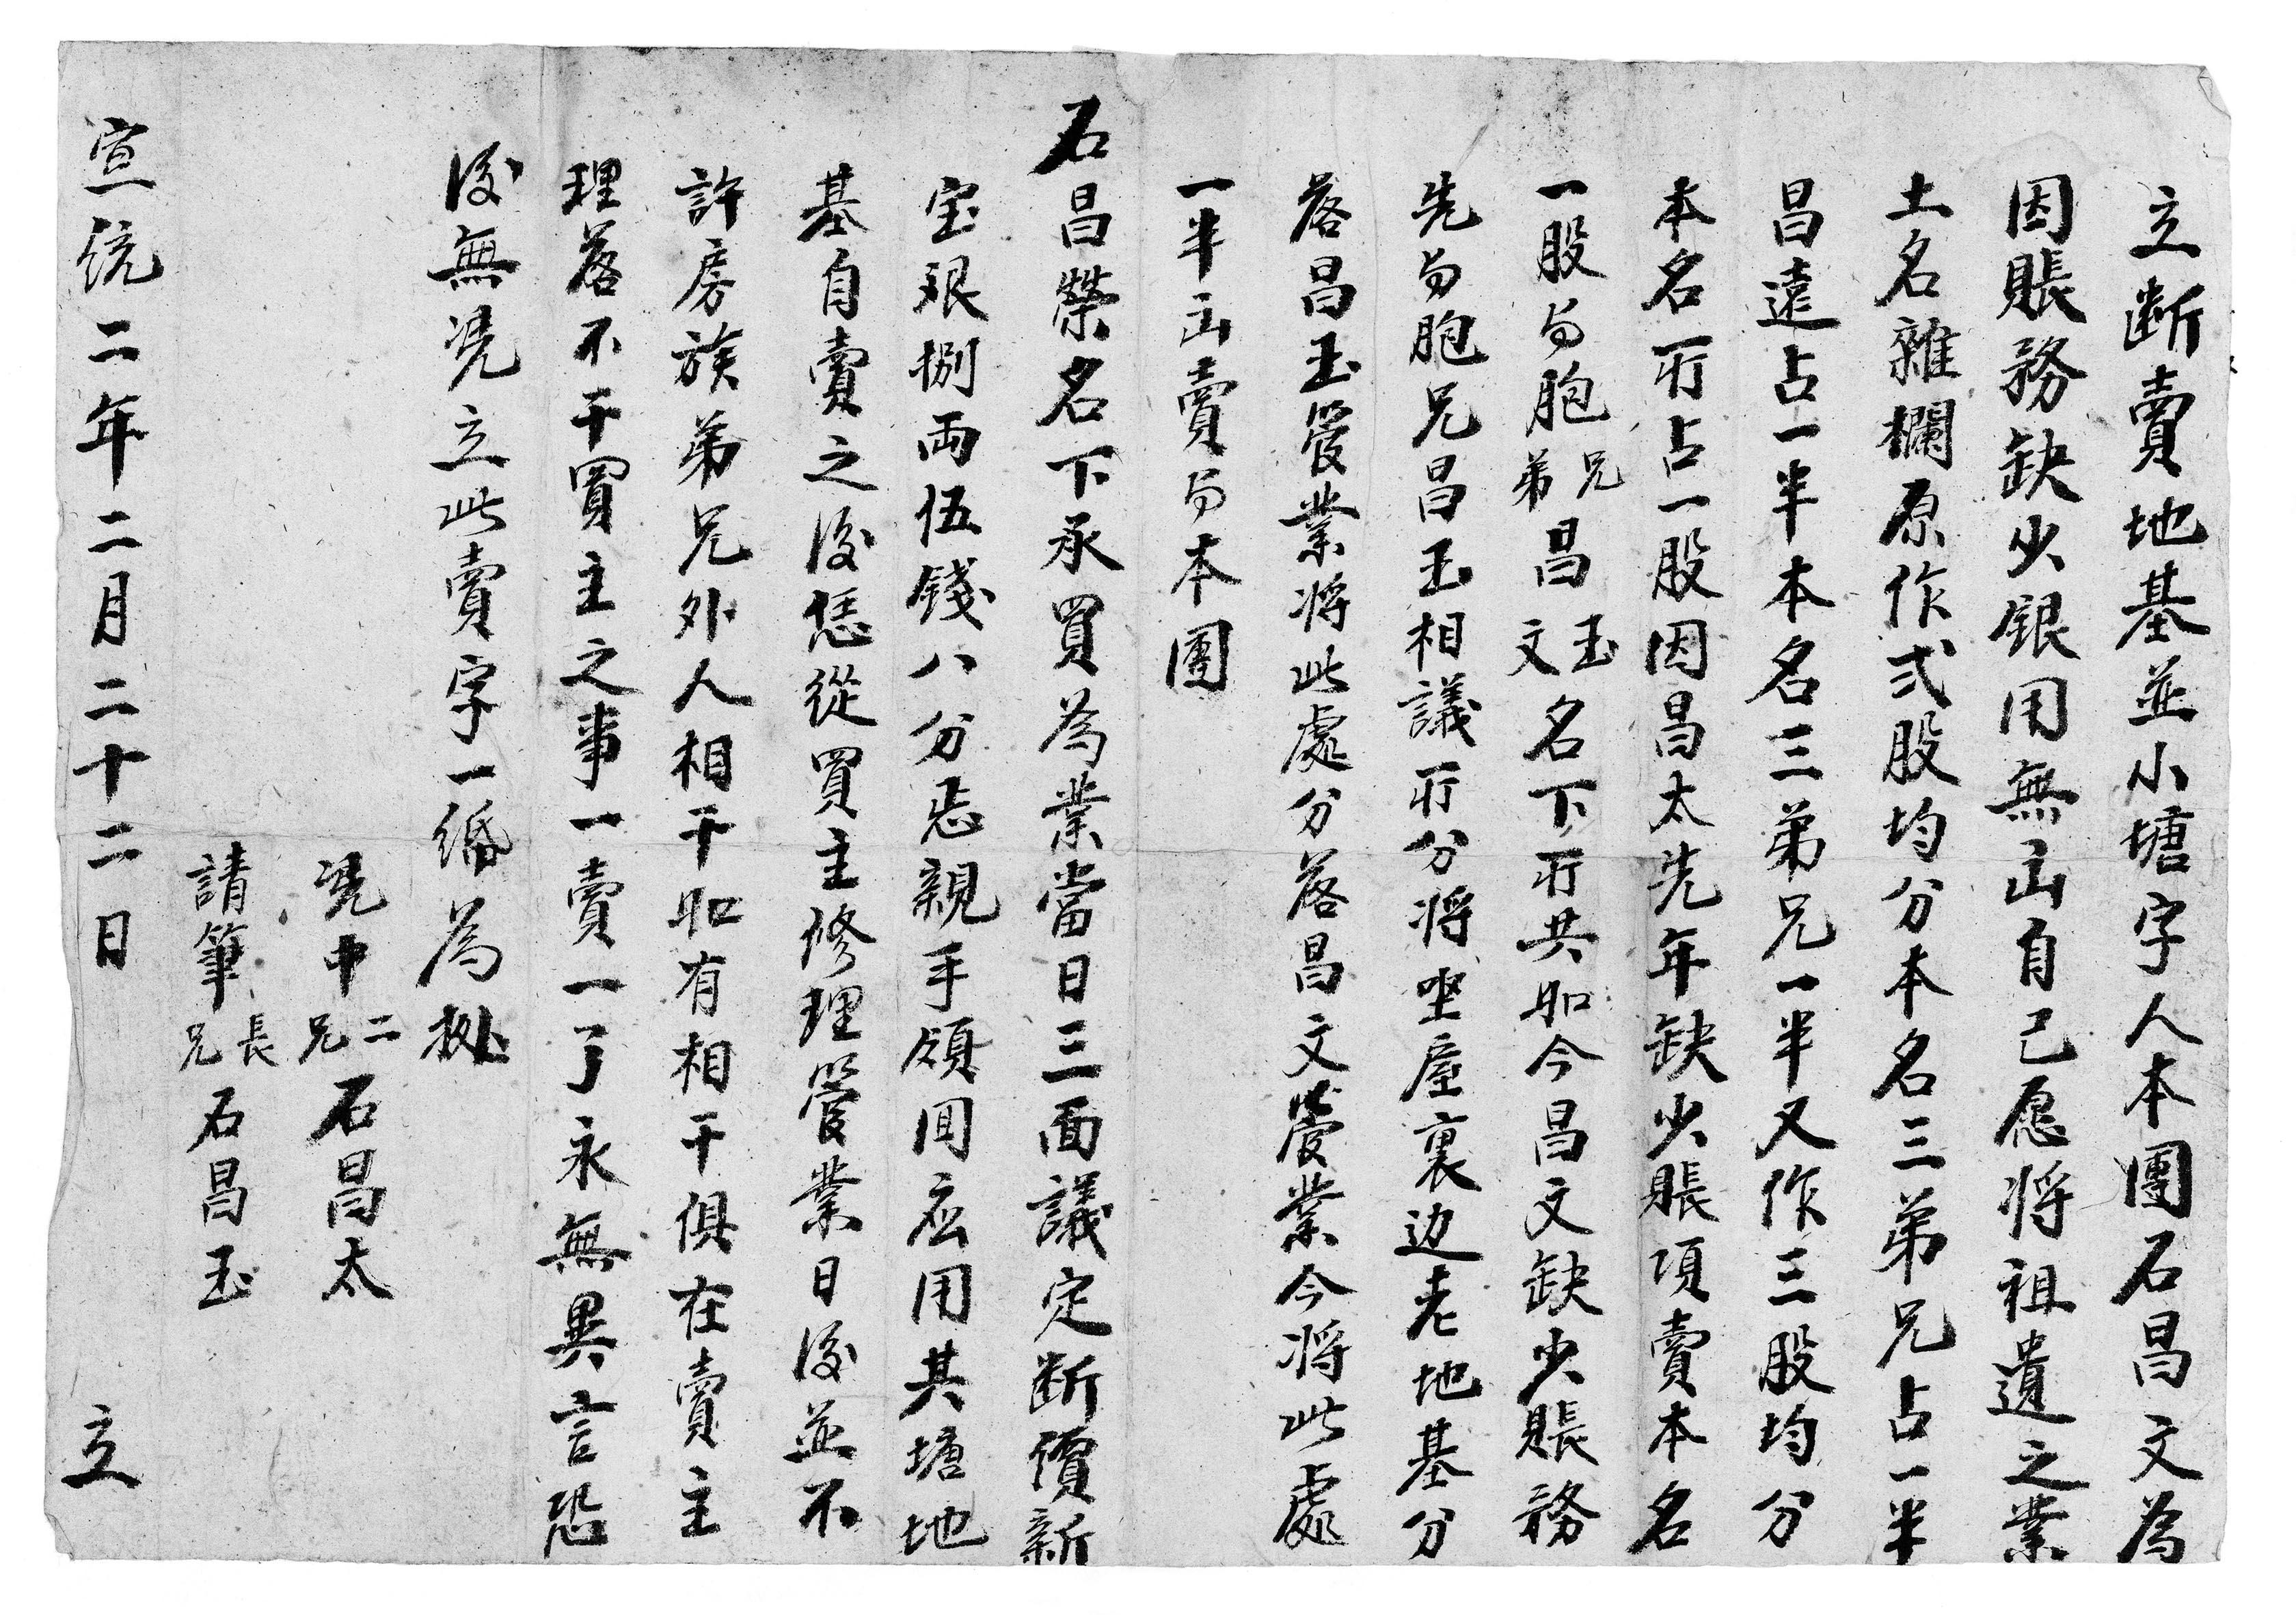 立断賣地基並小塘字人本團石昌文為
因賬務缺少銀用無出自己愿将祖遺之業
土名雜欄原作弍股均分本名三弟兄占一半
昌遠占一半本名三弟兄一半又作三股均分
本名所占一股因昌太先年缺少賬項賣本名
一股与胞兄弟昌玉文名下所共耶今昌文缺少賬務
先与胞兄昌玉相議所分将坐屋裏边老地基分
落昌玉管業将此處分落昌文管業今将此處
一半出賣与本團
石昌榮名下承買為業當日三面議定断價新
宝艮捌両伍錢八分㤙親手領囬应用其塘地
基自賣之後恁從買主修理管業日後並不
許房族弟兄外人相干耶有相干俱在賣主
理落不干買主之事一賣一了永無異言恐
後無凴立此賣字一緍為㨿
凴中二兄石昌太
請筆長兄石昌玉
宣统二年二月二十二日 立